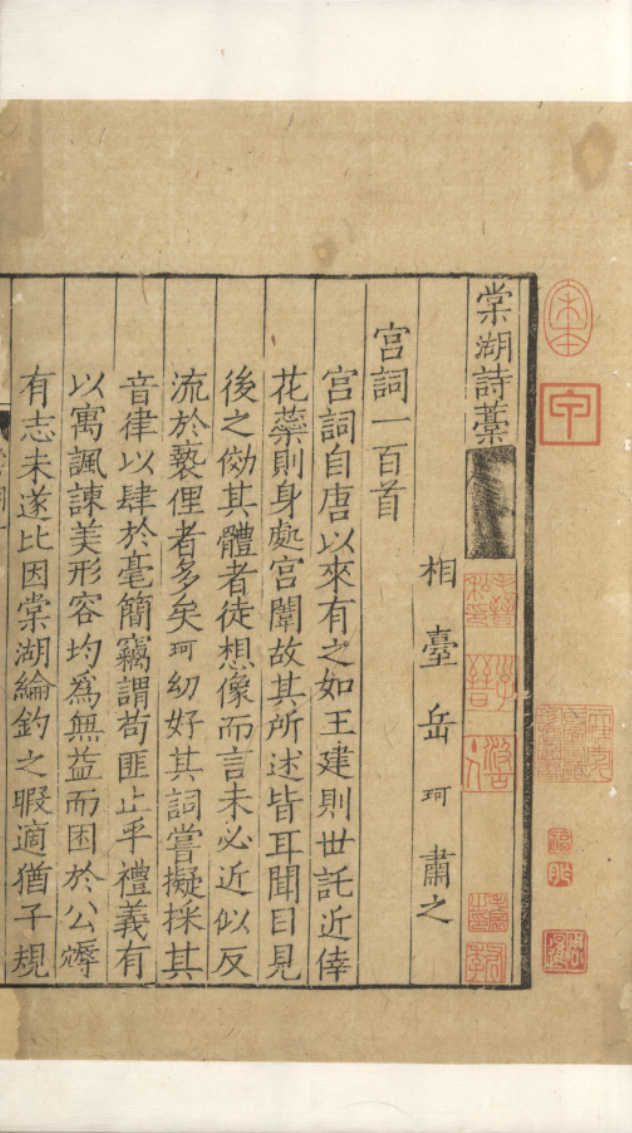 棠湖詩藁
相臺岳珂肅之
宫詞一百首
宫詞自唐以來有之如王建則世託近倖
花蘂則身處宫闈故其所述皆耳聞目見
後之傚其體者徒想像而言未必近似反
流於褻俚者多矣珂幼好其詞嘗擬採其
音律以肆於毫簡竊謂苟匪止乎禮義有
以寓諷諫美形容均爲無益而困於公
有志未遂比因棠湖綸釣之暇適猶子規
宋本
甲